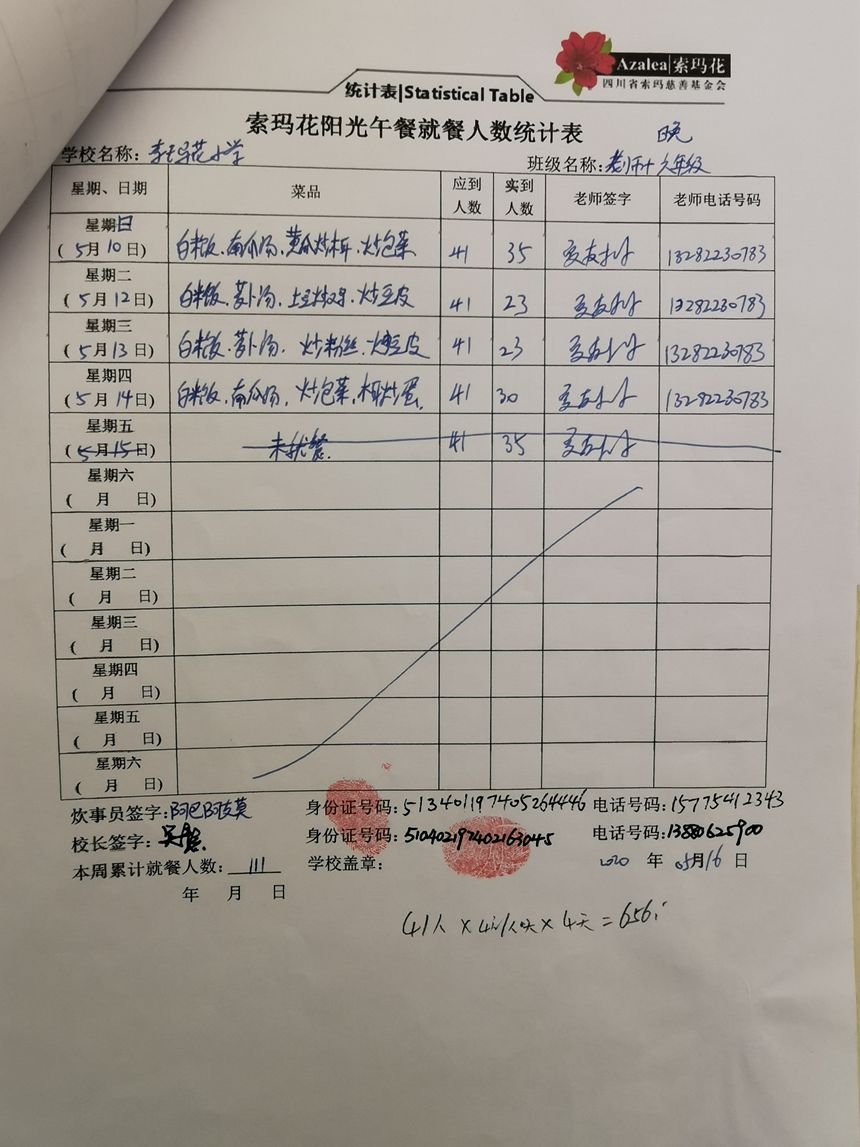 Azalea|索玛花
四川省索玛慈善基金会
统计表|Statistical Table
索玛花阳光午餐就餐人数统计表 晚
学校名称: 索玛花小学 班级名称: 老师+六年级
星期、日期 菜品 应到人数 实到人数 老师签字 老师电话号码
星期日
(5月10日) 白米饭、南瓜汤、黄瓜炒木耳、炒包菜 41 35 13282230783
星期二
(5月12日) 白米饭、萝卜汤、土豆 炒豆皮 41 23 13282230783
星期三
(5月13日) 白米饭、萝卜汤、炒粉丝、豆皮 41 23 13282230783
星期四
(5月14日) 白米饭、南瓜汤、炒包菜、炒蛋 41 30 13282230783
星期五
(5月15日) 未就餐 41 35
星期六
( 月 日)
星期一
( 月 日)
星期二
( 月 日)
星期三
( 月 日)
星期四
( 月 日)
星期五
( 月 日)
星期六
( 月 日)
炊事员签字: 阿巴阿支莫 身份证号码: 513401197405264446 电话号码: 15775412343
校长签字: 身份证号码: 510402197402163045 电话号码: 13880625900
本周累计就餐人数: 111 学校盖章: 2020 年 05月16日
年 月 日
41人 × 4 × 4天 = 656